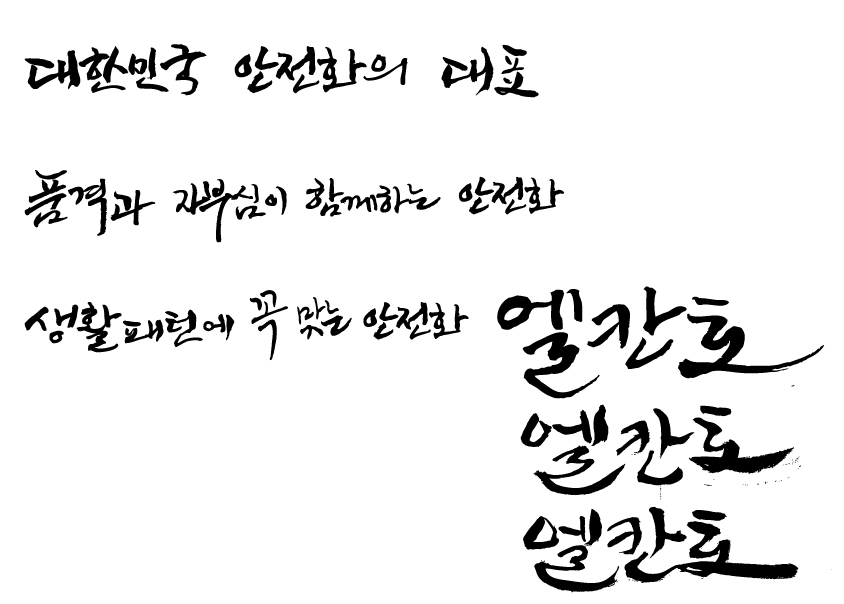 대한민국 안전화의 대표
품격과 자부심이 함께하는 안전화
생활패턴에 꼭 맞는 안전화
엘칸토
엘칸토
엘칸토